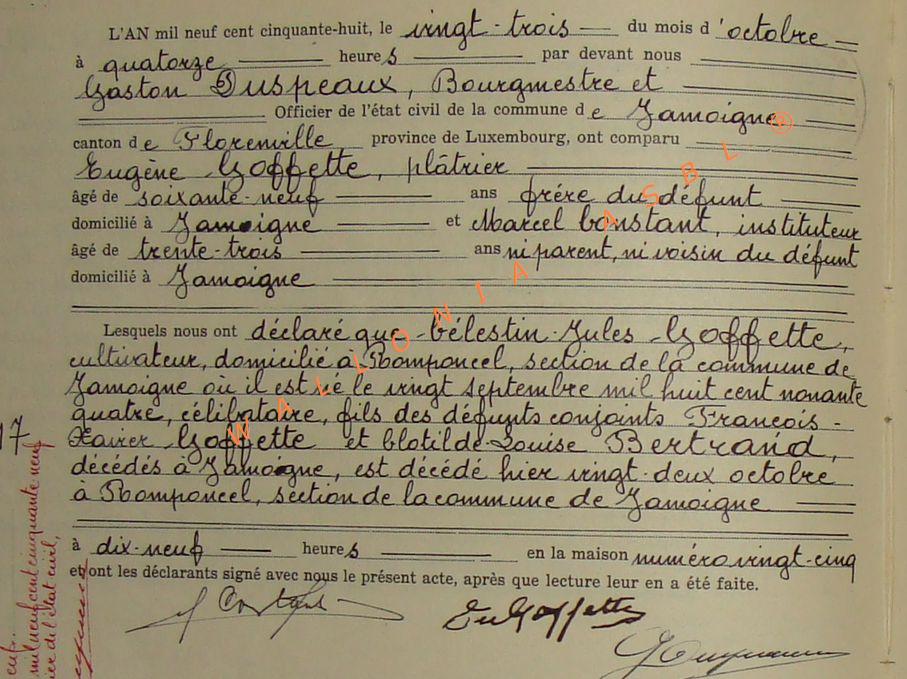 L'AN mil neuf cent cinquante-huit, le vingt-trois du mois d'octobre
à quatorze heures par devant nous
Gaston Duspeaux, Bourgmestre et
Officier de l'état civil de la commune de Jamoigne
canton de Florenville province de Luxembourg, ont comparu
Eugène Goffette, plâtrier
âgé de soixante-neuf ans frére du défunt
domicilié à Jamoigne et Marcel Constant, instituteur
âgé de trente-trois ans ni parent, ni voisin du défunt
domicilié à Jamoigne
Lesquels nous ont déclaré que Célestin-Jules Goffette,
cultivateur, domicilié à Romponcel, section de la commune de
Jamoigne où il est né le vingt septembre mil huit cent nonante
quatre, célibataire, fils des défunts conjoints François-
17
Xavier Goffette et Clotilde-Louise Bertrand,
décédés à Jamoigne, est décédé hier vingt-deux octobre
à Romponcel, section de la commune de Jamoigne
à dix-neuf heures en la maison numéro vingt-cinq
et ont les déclarants signé avec nous le présent acte, après que lecture leur en a été faite.
Eu Goffette
mil neuf cent cinquante neuf
ier de l'état civil,
WALLONIA ASBL ®